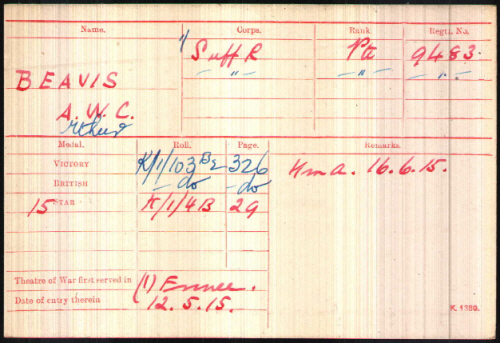 Name. Corps. Rank. Regtl. No.
BEAVIS 1) Suff R Pte 9483.
— " — — " — — " —
A. W. C.
Arthur
Medal. Roll. Page. Remarks.
VICTORY K/1/103 B2 326 K in A. 16.6.15.
BRITISH — do — do
15 STAR K/1/4B 29
Theatre of War first served in (1) France.
Date of entry therein 12.5.15.
K. 1380.